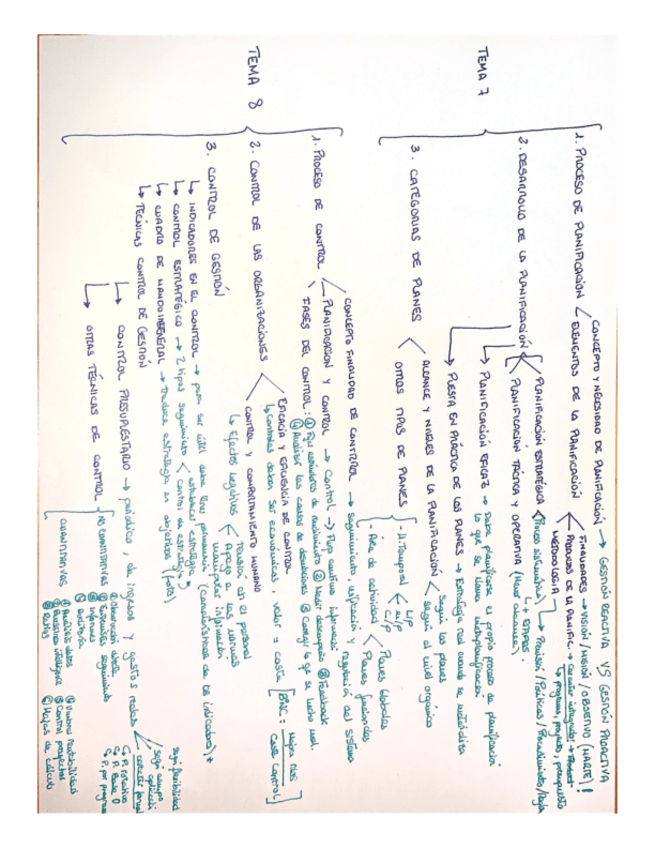 TEMA 7
1. PROCESO DE PLANIFICACIÓN
CONCEPTO Y NECESIDAD DE PLANIFICACIÓN → GESTIÓN REACTIVA VS GESTIÓN PROACTIVA
ELEMENTOS DE LA PLANIFICACIÓN
FINALIDADES → VISIÓN / MISIÓN / OBJETIVO (MARTE)!
PROCESO DE LA PLANIFIC. → Carácter integrador →
↳ programa, proyecto, presupuesto
METODOLOGÍA
2. DESARROLLO DE LA PLANIFICACIÓN
PLANIFICACIÓN ESTRATÉGICA
→ Previsión / Políticas / Procedimiento / Reglas
PLANIFICACIÓN TÁCTICA Y OPERATIVA
↳ ETAPAS.
PLANIFICACIÓN EFICAZ → Debe planificarse el propio proceso de planificación
lo que se llama metaplanificación
PUESTA EN PRÁCTICA DE LOS PLANES → Estrategia real cuando se materializa
3. CATEGORIAS DE PLANES
ALCANCE Y NIVELES DE LA PLANIFICACIÓN
Según los planes
según el nivel orgánico
OTROS TIPOS DE PLANES
- H. Temporal
L/P
M/P
C/P
- Área de actividad
Planes Globales
Planes funcionales
TEMA 8
1. PROCESO DE CONTROL
CONCEPTO FINALIDAD DE CONTROL → Seguimiento, verificación y regulación del sistema
PLANIFICACION Y CONTROL → Control → Flujo continuo información
FASES DEL CONTROL: ① Fijar estándares de rendimiento ② Medir desempeño ③ Feedback
④ Analizar las causas de desviaciones ⑤ Corregir lo que se hecho mal.
2. CONTROL DE LAS ORGANIZACIONES
EFICACIA Y EFICIENCIA DE CONTROL
↳ Controles deben ser económicos, valor = coste
CONTROL Y COMPORTAMIENTO HUMANO
↳ Efectos Negativos
Tensión en el personal
Apego a las normas
manipular información
3. CONTROL DE GESTIÓN
↳ INDICADORES EN EL CONTROL → para ser útil debe tener permanencia (características de un indicador) *
↳ CONTROL ESTRATÉGICO → 2 tipos seguimiento
establecer estrategia
control de estrategia
↳ CUADRO DE MANDO INTEGRAL → Traduce estrategia en objetivos (foto)
↳ TÉCNICAS CONTROL DE GESTIÓN
↳ CONTROL PRESUPUESTARIO → periódico, de ingresos y gastos reales
según flexibilidad
según campo aplicación
carácter formal
↳ P. rotativo
↳ P. Base 0
↳ P. por programa
↳ OTRAS TÉCNICAS DE CONTROL
NO CUANTITATIVAS
① Observación directa
② Entrevistas seguimiento
③ Informes
④ Auditoría
CUANTITATIVAS
① Análisis datos
② Business intelligence
③ Ratios
④ Umbral rentabilidad
⑤ Control proyectos
⑥ Hojas de cálculo